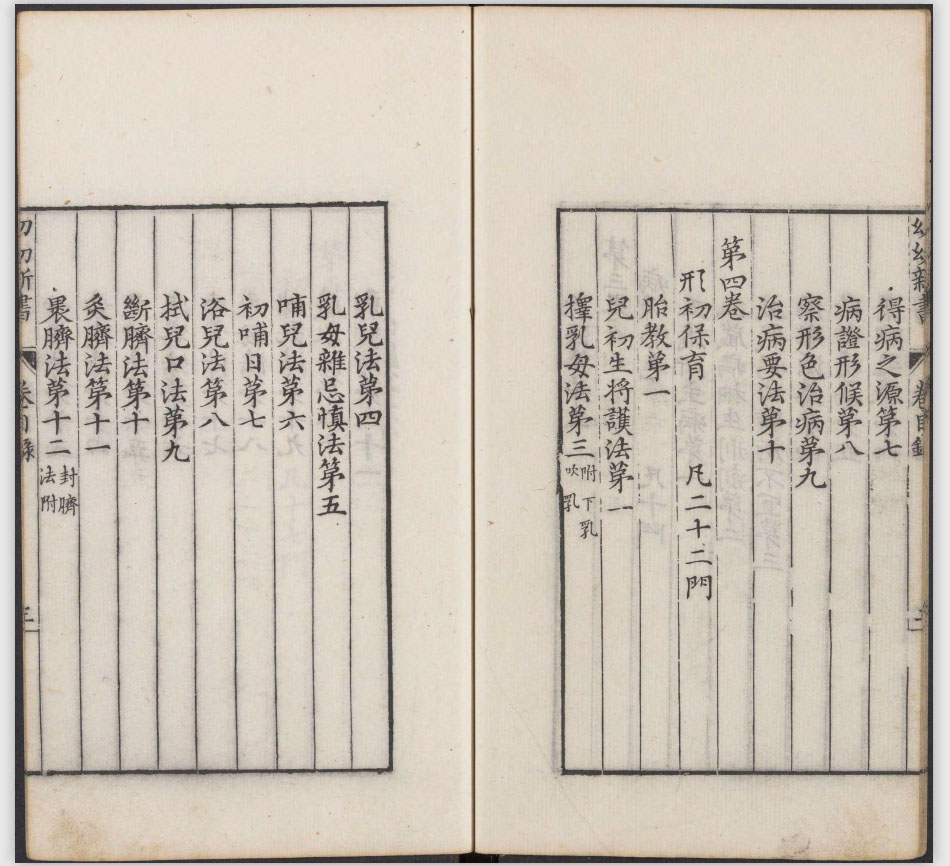 幼幼新書 卷目錄 二
得病之源第七
病證形候第八
察形色治病第九
治病要法第十
第四卷
形初保育 凡二十二門
胎教第一
兒初生將護法第一
擇乳母法第三附下乳吹乳
乳兒法第四
乳母雜忌慎法第五
哺兒法第六
初哺日第七
浴兒法第八
拭兒口法第九
斷臍法第十
灸臍法第十一
裹臍法第十二封臍法附
書 目 三